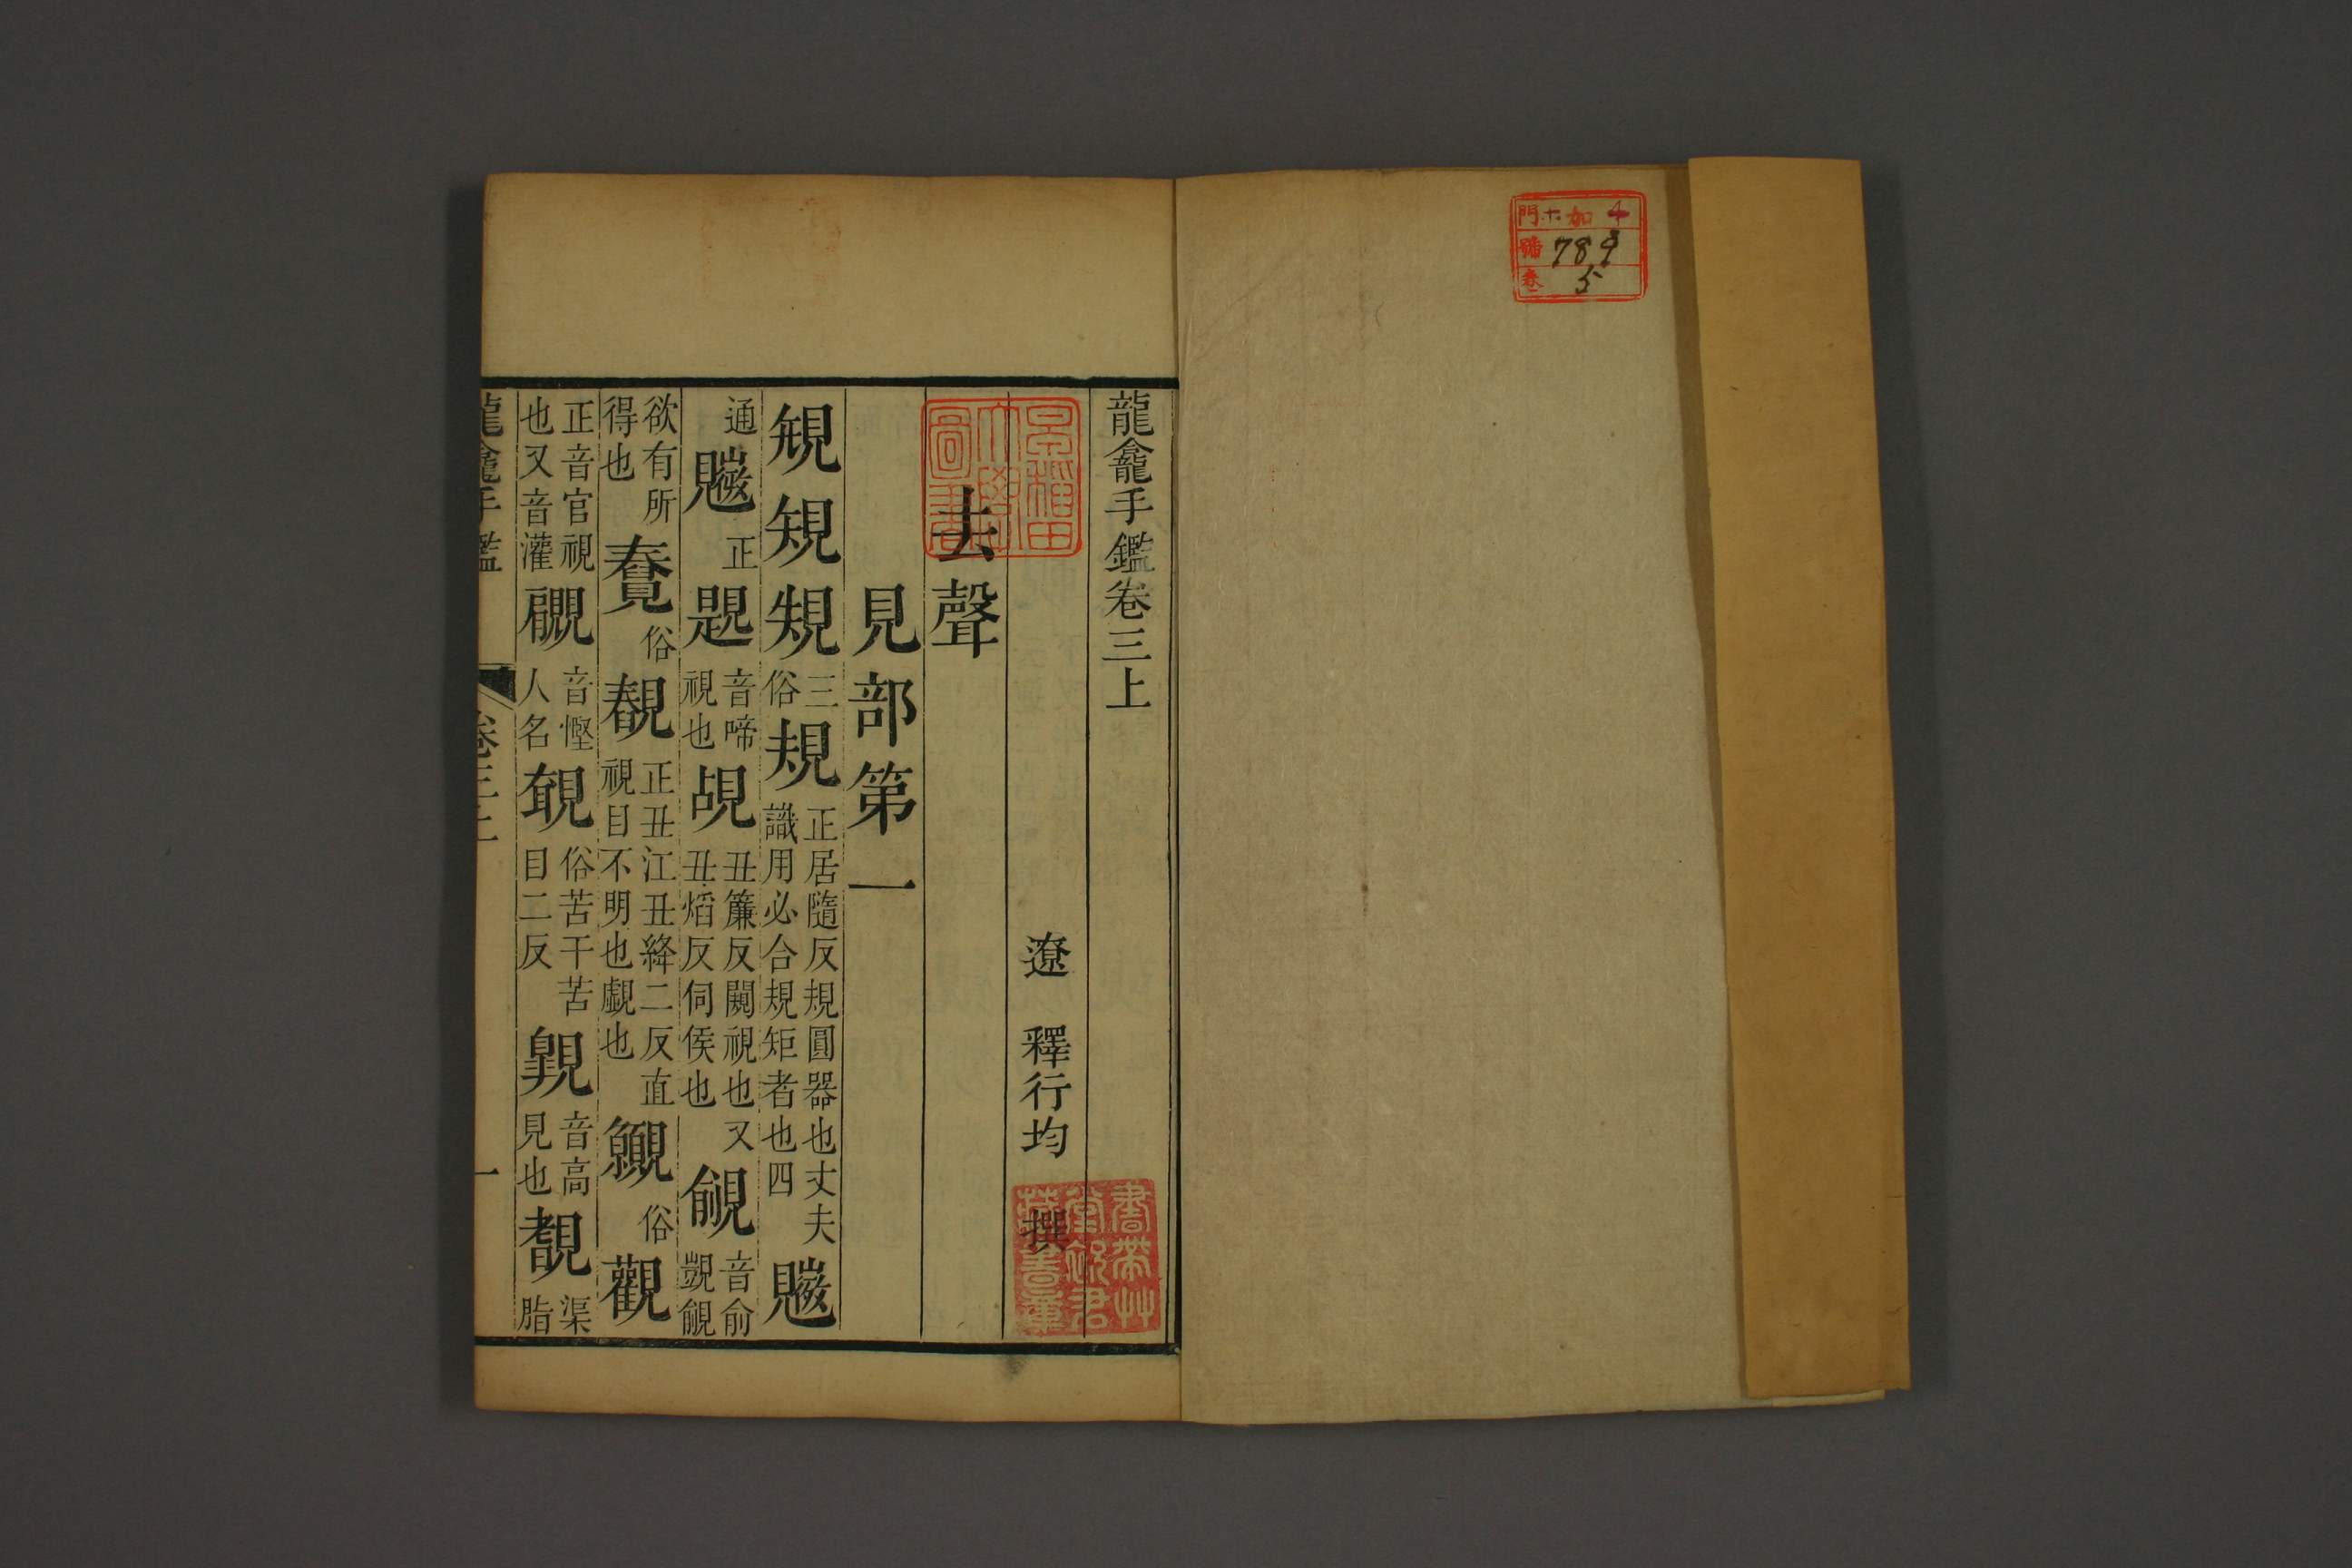 門 加 4
號 789
卷 5
龍龕手鑑卷三上
遼 釋行均 撰
早稻田大學圖書
書帶草堂叙君藏書章
去聲
見部第一
䂓䂓䂓三俗規正居隨反規圓器也丈夫識用必合規矩者也四
通 正題音啼視也覘丑簾反闚視也又丑熖反伺侯也覦音俞覬覦
欲有所得也 俗覩正丑江丑絳二反直視目不明也覻也 俗觀
正音官視也又音灌覵音慳人名 俗苦干苦目二反 音高見也 渠脂
龍龕手鑑 卷三上 一